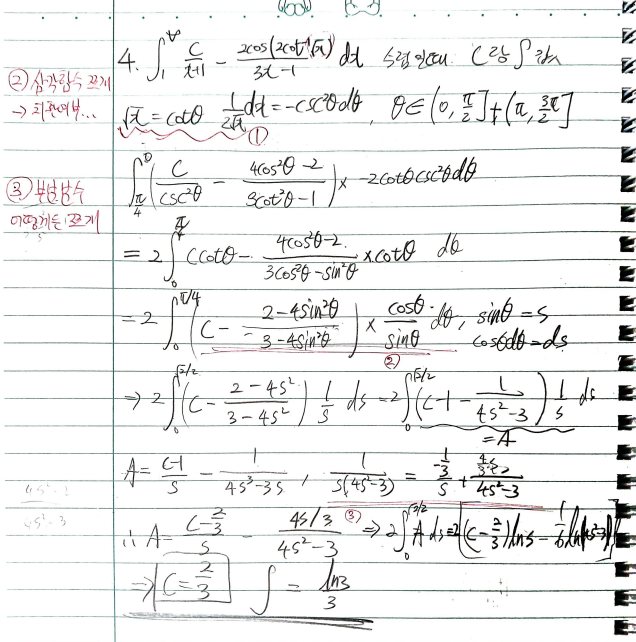 4. ∫₁^∞ C/(x+1) − 2cos(2cot⁻¹√x)/(3x−1) dx 수렴일때 C랑 ∫ 값
② 삼각함수 쪼개
→ 치환여부...
√x = cotθ 1/(2√x) dx = −csc²θdθ, θ∈(0, π/2]+(π, 3π/2]
①
∫_{π/4}^0 (C/csc²θ − (4cos²θ−2)/(3cot²θ−1)) × −2cotθcsc²θdθ
③ 부분분수
어떻게든 쪼개
= 2∫₀^{π/4} Ccotθ − (4cos²θ−2)/(3cos²θ−sin²θ) × cotθ dθ
= 2∫₀^{π/4} (C − (2−4sin²θ)/(3−4sin²θ)) × cosθ/sinθ dθ, sinθ = s
cosθdθ = ds
②
⇒ 2∫₀^{√2/2} (C − (2−4s²)/(3−4s²)) 1/s ds = 2∫₀^{√2/2} (C−1 − 1/(4s²−3)) 1/s ds
= A
A = (C−1)/s − 1/(4s³−3s), 1/(s(4s²−3)) = (−1/3)/s + (4s/3)/(4s²−3)
③
∴ A = (C−2/3)/s − (4s/3)/(4s²−3) ⇒ 2∫₀^{√2/2} A ds = 2[(C−2/3)lns − 1/6 ln|4s²−3|]
⇒ C = 2/3 ∫ = ln3/3